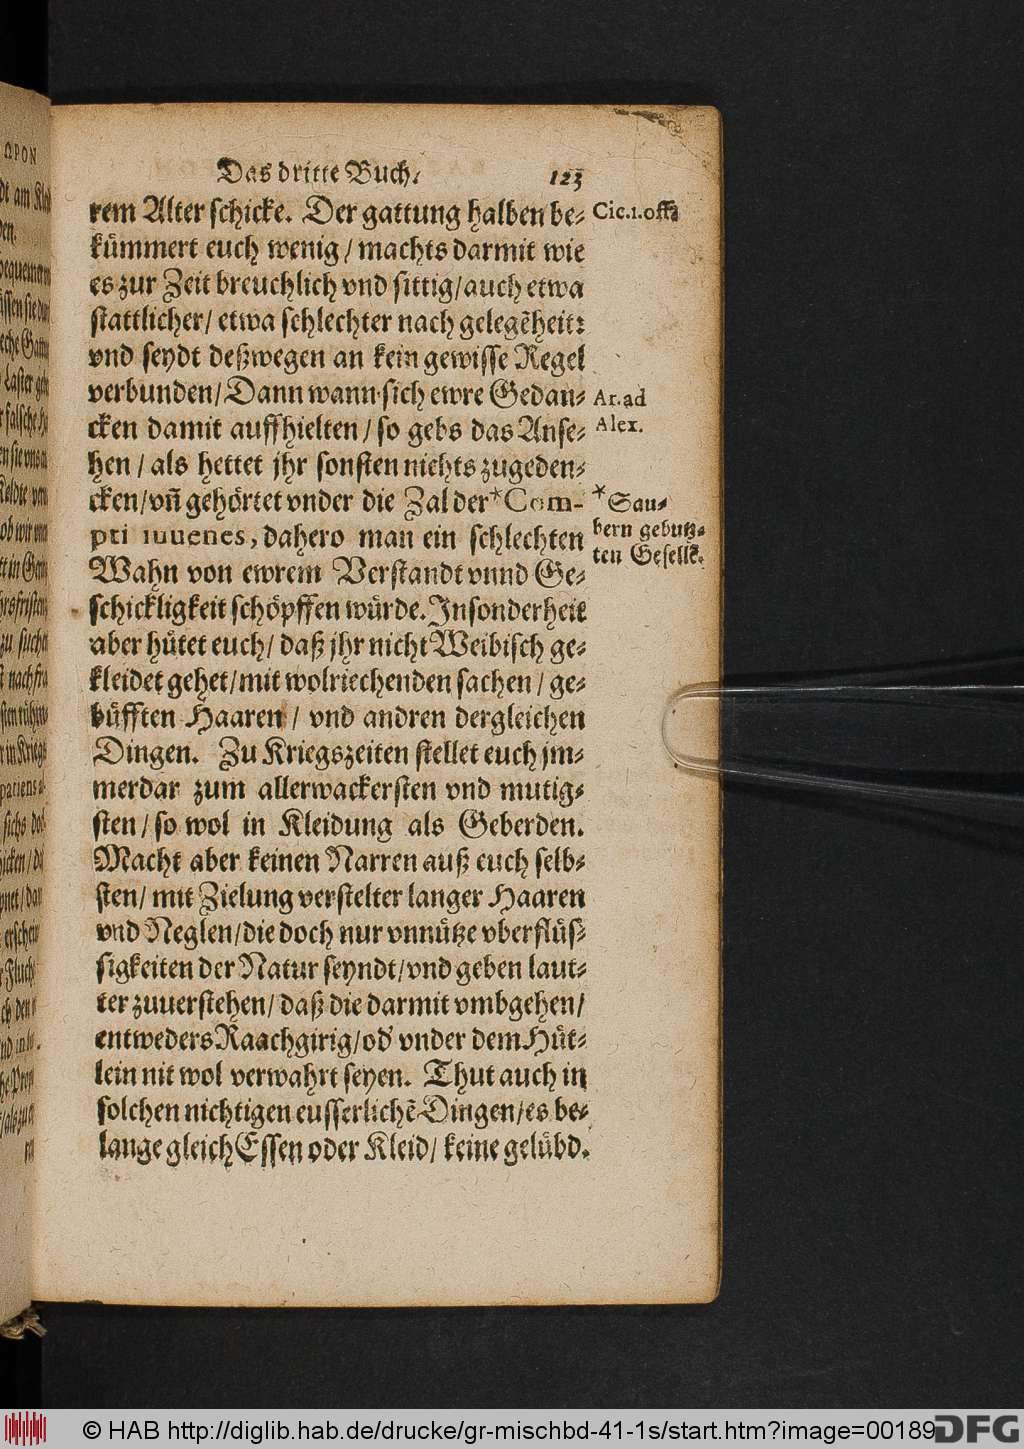 Das dritte Buch. 123
rem Alter schicke. Der gattung halben be-
kümmert euch wenig / machts darmit wie
es zur Zeit breuchlich vnd sittig / auch etwa
stattlicher / etwa schlechter nach gelegẽheit:
vnd seydt deßwegen an kein gewisse Regel
verbunden / Dann wann sich ewre Gedan-
cken damit auffhielten / so gebs das Anse-
hen / als hettet jhr sonsten nichts zugeden-
cken / vñ gehörtet vnder die Zal der *Com-
pti iuuenes, dahero man ein schlechten
Wahn von ewrem Verstandt vnnd Ge-
schickligkeit schöpffen würde. Insonderheit
aber hütet euch / daß jhr nicht Weibisch ge-
kleidet gehet / mit wolriechenden sachen / ge-
büfften Haaren / vnd andren dergleichen
Dingen. Zu Kriegszeiten stellet euch jm-
merdar zum allerwackersten vnd mutig-
sten / so wol in Kleidung als Geberden.
Macht aber keinen Narren auß euch selb-
sten / mit Zielung verstelter langer Haaren
vnd Neglen / die doch nur vnnütze vberflüs-
sigkeiten der Natur seyndt / vnd geben laut-
ter zuuerstehen / daß die darmit vmbgehen /
entweders Raachgirig / od' vnder dem Hüt-
lein nit wol verwahrt seyen. Thut auch in
solchen nichtigen eusserlichẽ Dingen / es be-
lange gleich Essen oder Kleid / keine gelübd.
Cic. 1. off.
Ar. ad
Alex.
*Sau-
bern gebutz-
ten Gesellẽ.
© HAB http://diglib.hab.de/drucke/gr-mischbd-41-1s/start.htm?image=00189
DFG